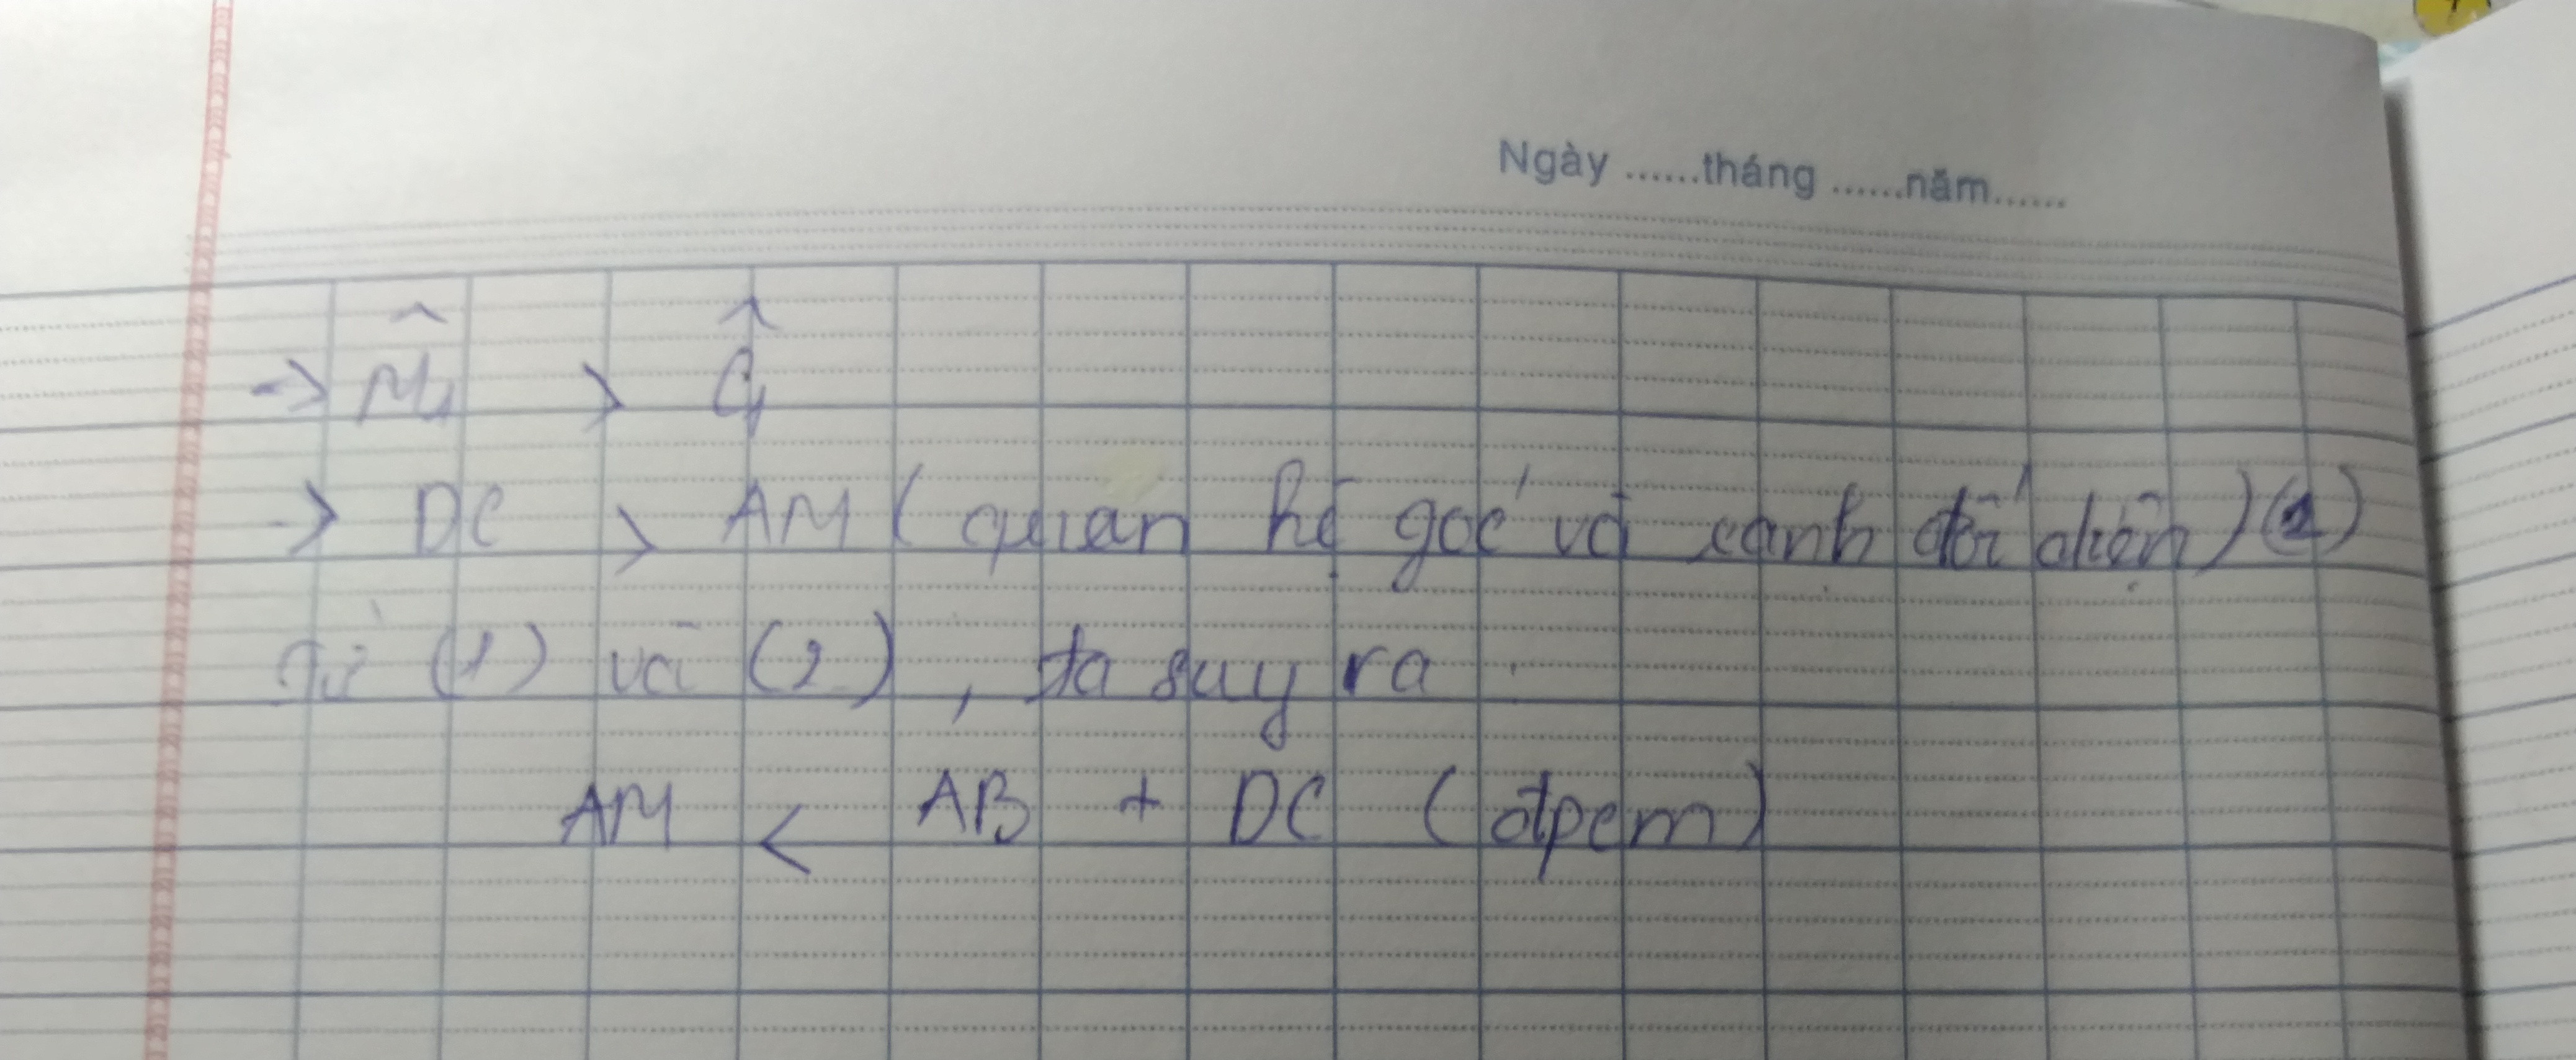 Ngày ......tháng ......năm......
-> M̂₁ > Ĉ₁
-> DC > AM ( quan hệ góc và cạnh đối diện ) (2)
từ (1) và (2) , ta suy ra
AM < AB + DC ( đpcm )